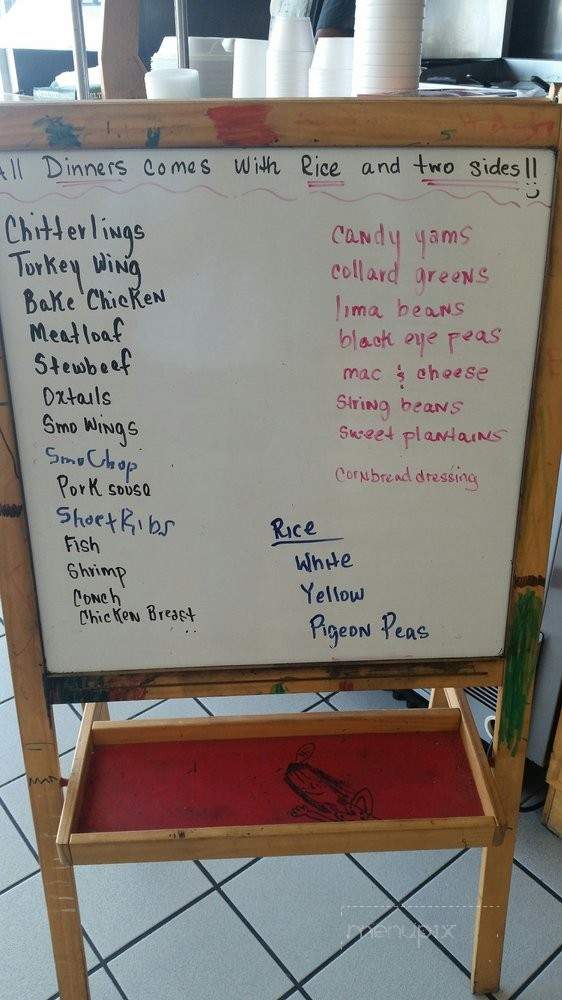 All Dinners comes with Rice and two sides!!
Chitterlings
Turkey Wing
Bake Chicken
Meatloaf
Stewbeef
Oxtails
Smo Wings
Smo Chop
Pork souse
Short Ribs
Fish
Shrimp
Conch
Chicken Breast
candy yams
collard greens
lima beans
black eye peas
mac & cheese
string beans
sweet plantains
cornbread dressing
Rice
White
Yellow
Pigeon Peas
menupix